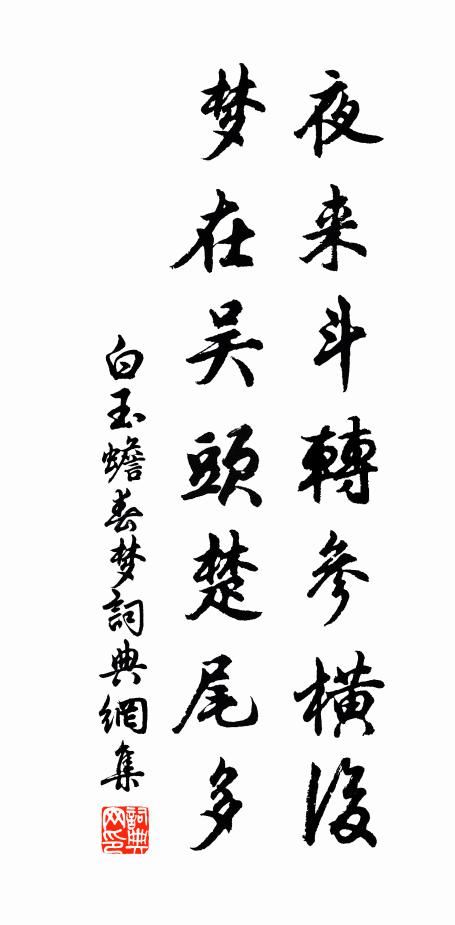 夜来斗轉參橫後
梦在吴頭楚尾多
白玉蟾春梦詞典網集
詞典网印